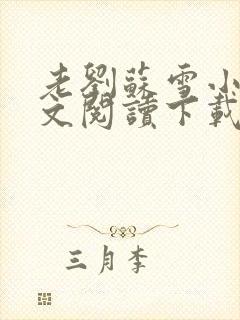 老劉蘇雪小
文閱讀下載
三月李